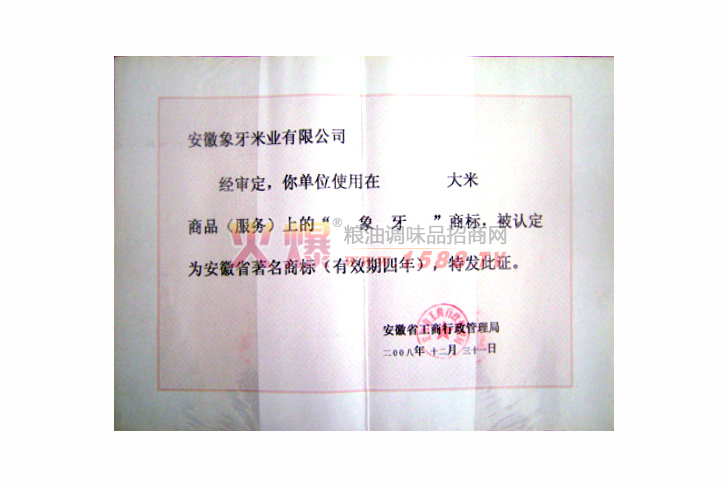 安徽象牙米业有限公司
经审定，你单位使用在 大米
商品（服务）上的“ 象 牙 ”商标，被认定
火爆® 粮油调味品招商网
www.1588.TV
为安徽省著名商标（有效期四年），特发此证。
安徽省工商行政管理局
二00八年 十二月 三十一日